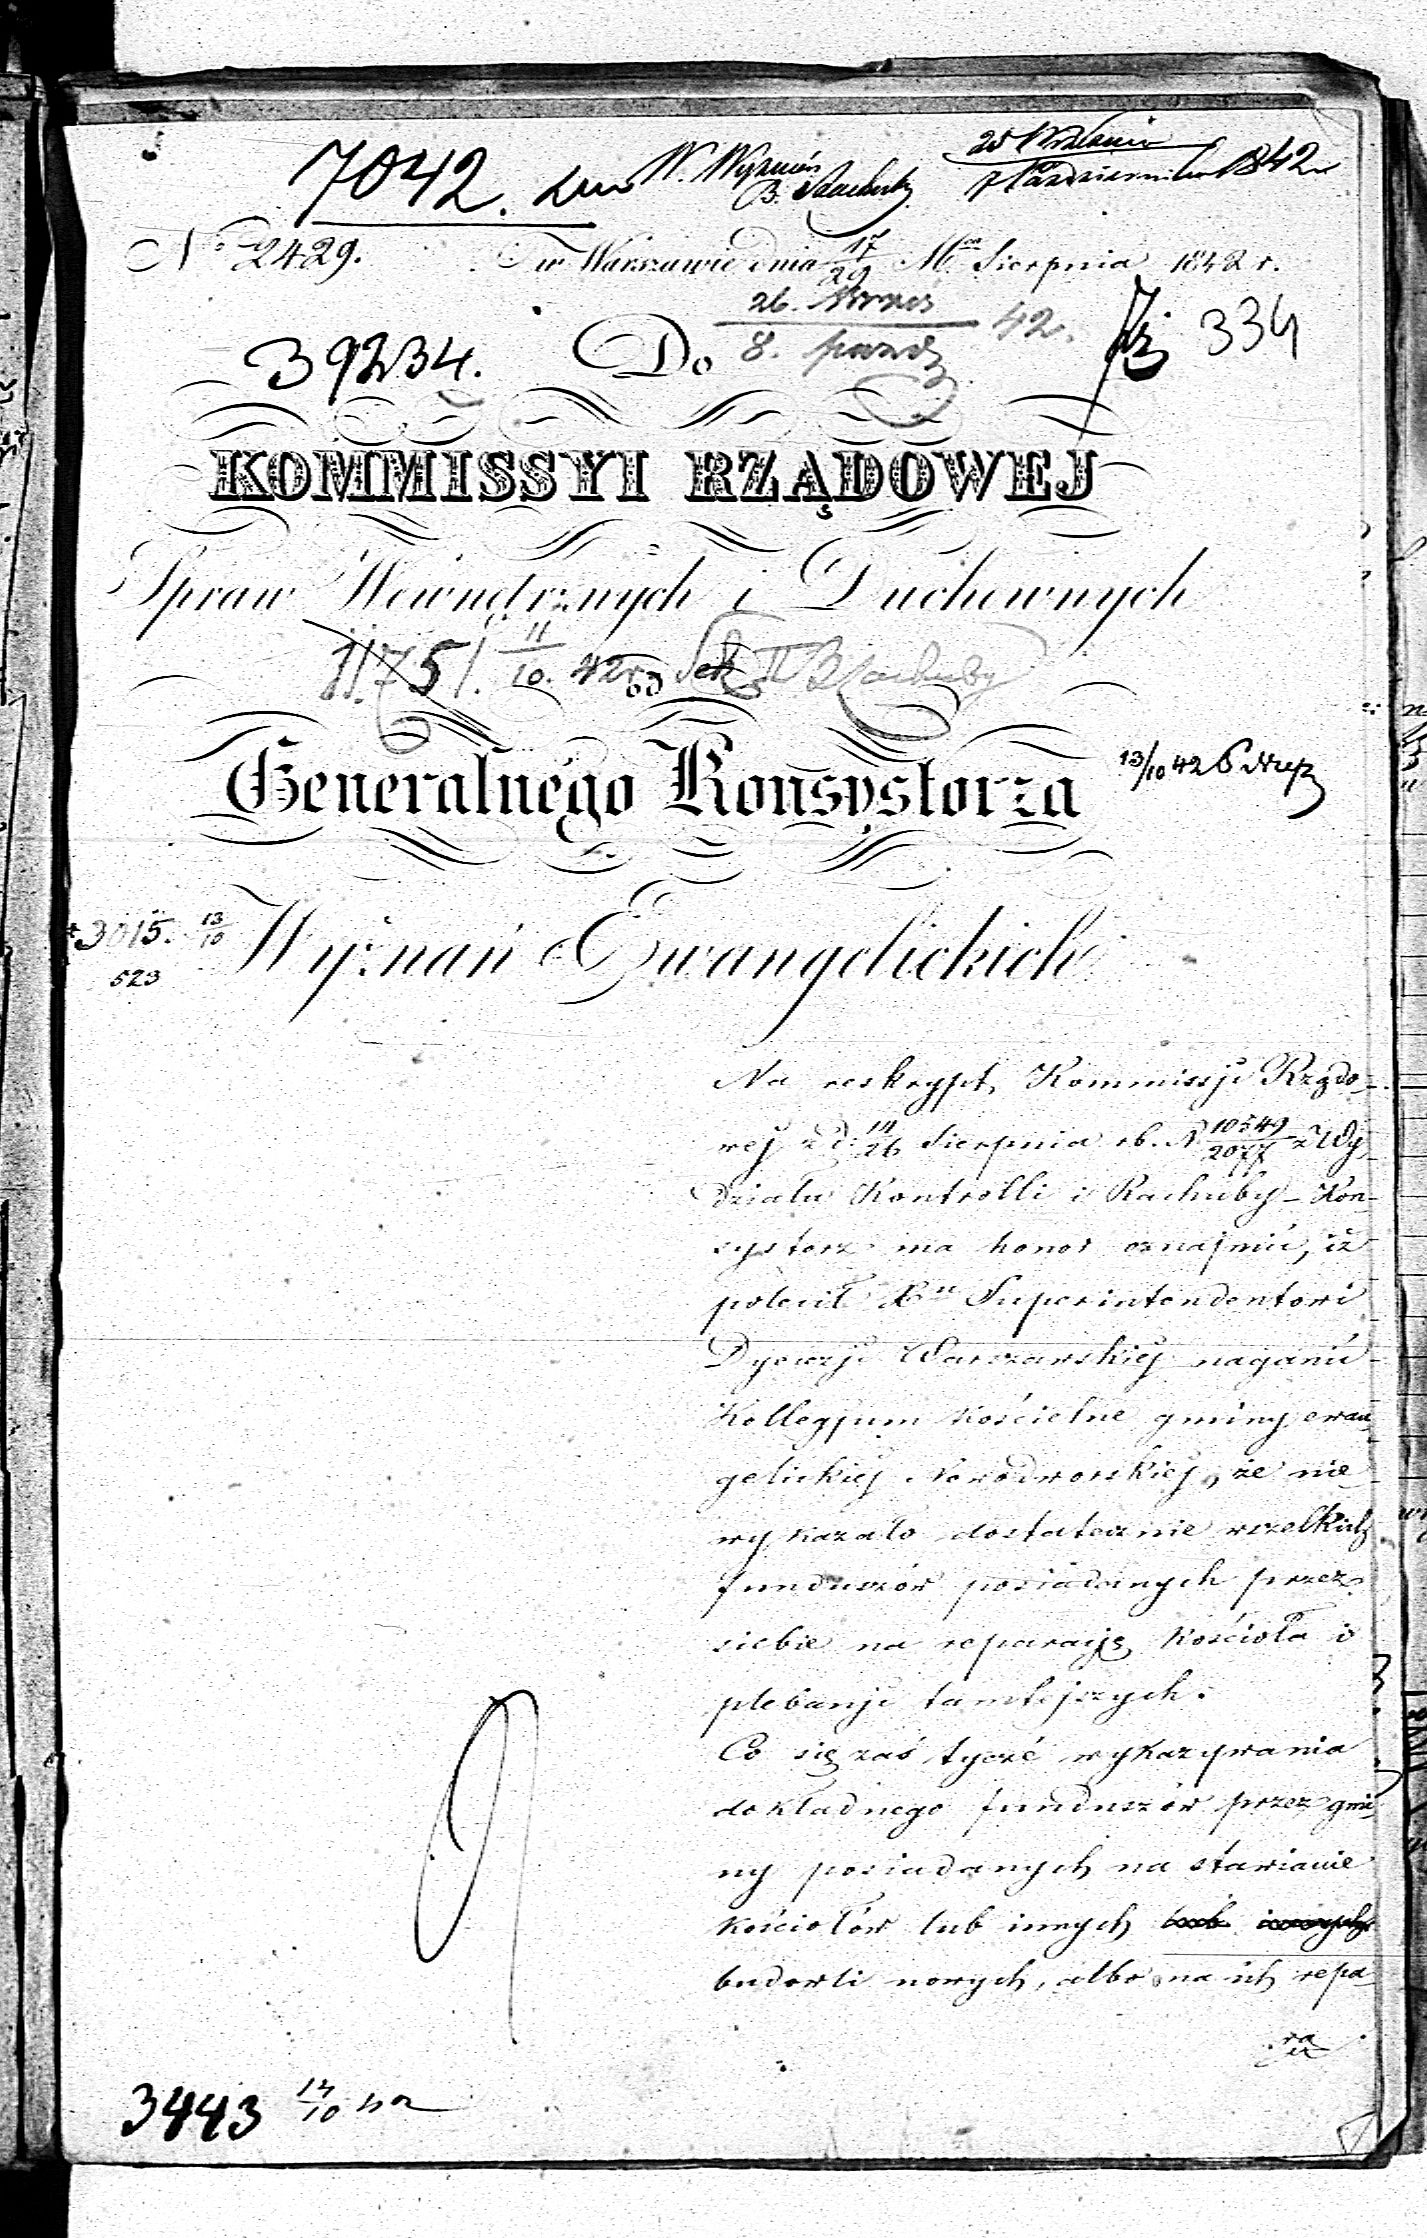 7042. W. Wyznań 25 Września
B. Rachuby 7 Października 1842 r
No 2429. w Warszawie dnia 17/29 Mca Sierpnia 1842 r.
26. Wrześ
39234. Do 8. paźdz 42. 334
KOMMISSYI RZĄDOWEJ
Spraw Wewnętrznych i Duchownych
11751. 11/10. 42 r. od Sek II B Rachuby
Generalnego Konsystorza 13/10 42
3015. 13/10 Wyznań Ewangelickich
523
Na reskrypt Kommissji Rządo-
wej z d: 14/26 Sierpnia rb. N 10549/2077 z Wy
działu Kontrolli i Rachuby – Kon-
systorz ma honor oznajmić, iż
polecił Xu Superintendentowi
Dyecezji Warszawskiej naganić
Kollegjum kościelne gminy ewan
gelickiej Nowodworskiej, że nie
wykazało dostatecznie wszelkich
funduszów posiadanych przez
siebie na reparacyę kościoła i
plebanji tamtejszych.
Co się zaś tycze wykazywania
dokładnego funduszów przez gmi
ny posiadanych na stawianie
kościołów lub innych lub innych
budowli nowych, albo na ich repa
ra
3443 14/10 42